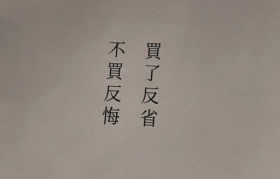 買了反省
不買反悔